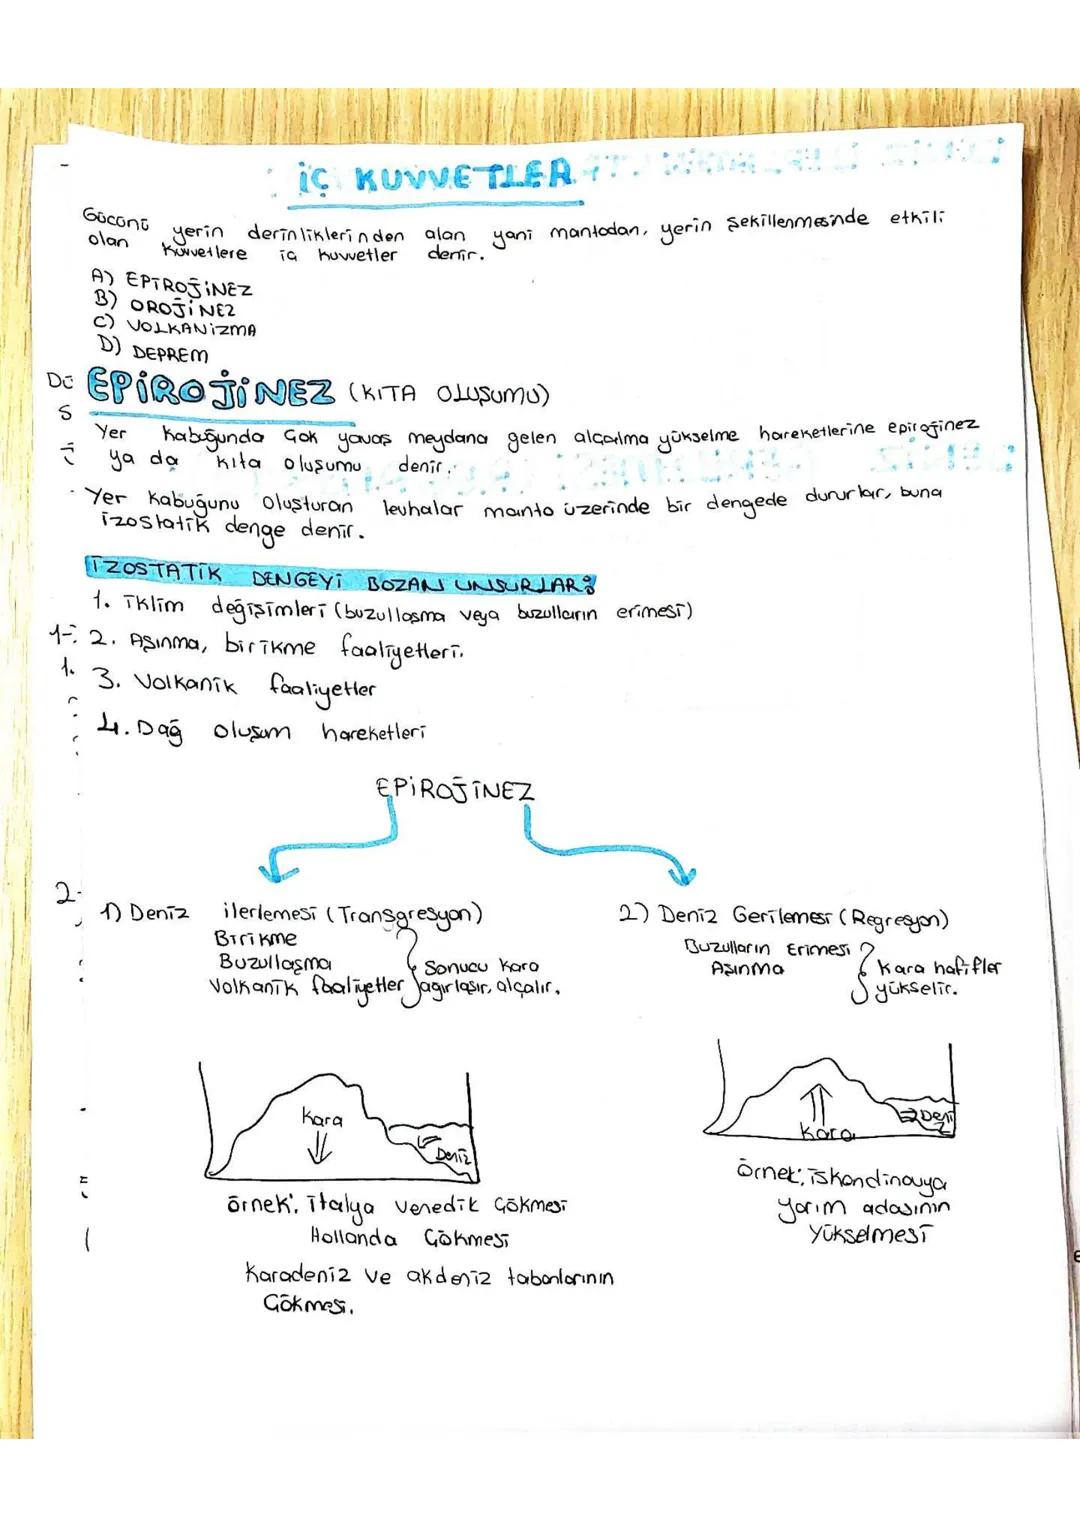 İÇ KUVVETLER
Gücünü yerin derinliklerinden alan yani mantodan, yerin şekillenmesinde etkili
olan kuvvetlere iç kuvvetler denir.
A) EPİROJİNEZ
B) OROJİNEZ
C) VOLKANİZMA
D) DEPREM
EPİROJİNEZ (KITA OLUŞUMU)
Yer kabuğunda çok yavaş meydana gelen alçalma yükselme hareketlerine epirojinez
ya da kıta oluşumu denir.
Yer kabuğunu oluşturan levhalar manto üzerinde bir dengede dururlar, buna
izostatik denge denir.
İZOSTATİK DENGEYİ BOZAN UNSURLAR:
1. İklim değişimleri (buzullaşma veya buzulların erimesi)
2. Aşınma, birikme faaliyetleri.
3. Volkanik faaliyetler
4. Dağ oluşum hareketleri
EPİROJİNEZ
1) Deniz ilerlemesi (Transgresyon)
Birikme
Buzullaşma
Volkanik faaliyetler
Sonucu kara
ağırlaşır, alçalır.
2) Deniz Gerilemesi (Regresyon)
Buzulların Erimesi
Aşınma
Kara hafifler
yükselir.
Kara
Deniz
Örnek: İtalya Venedik Çökmesi
Hollanda Çökmesi
Karadeniz ve akdeniz tabanlarının
Çökmesi.
Kara
Deniz
Örnek: İskandinavya
yarım adasının
Yükselmesi